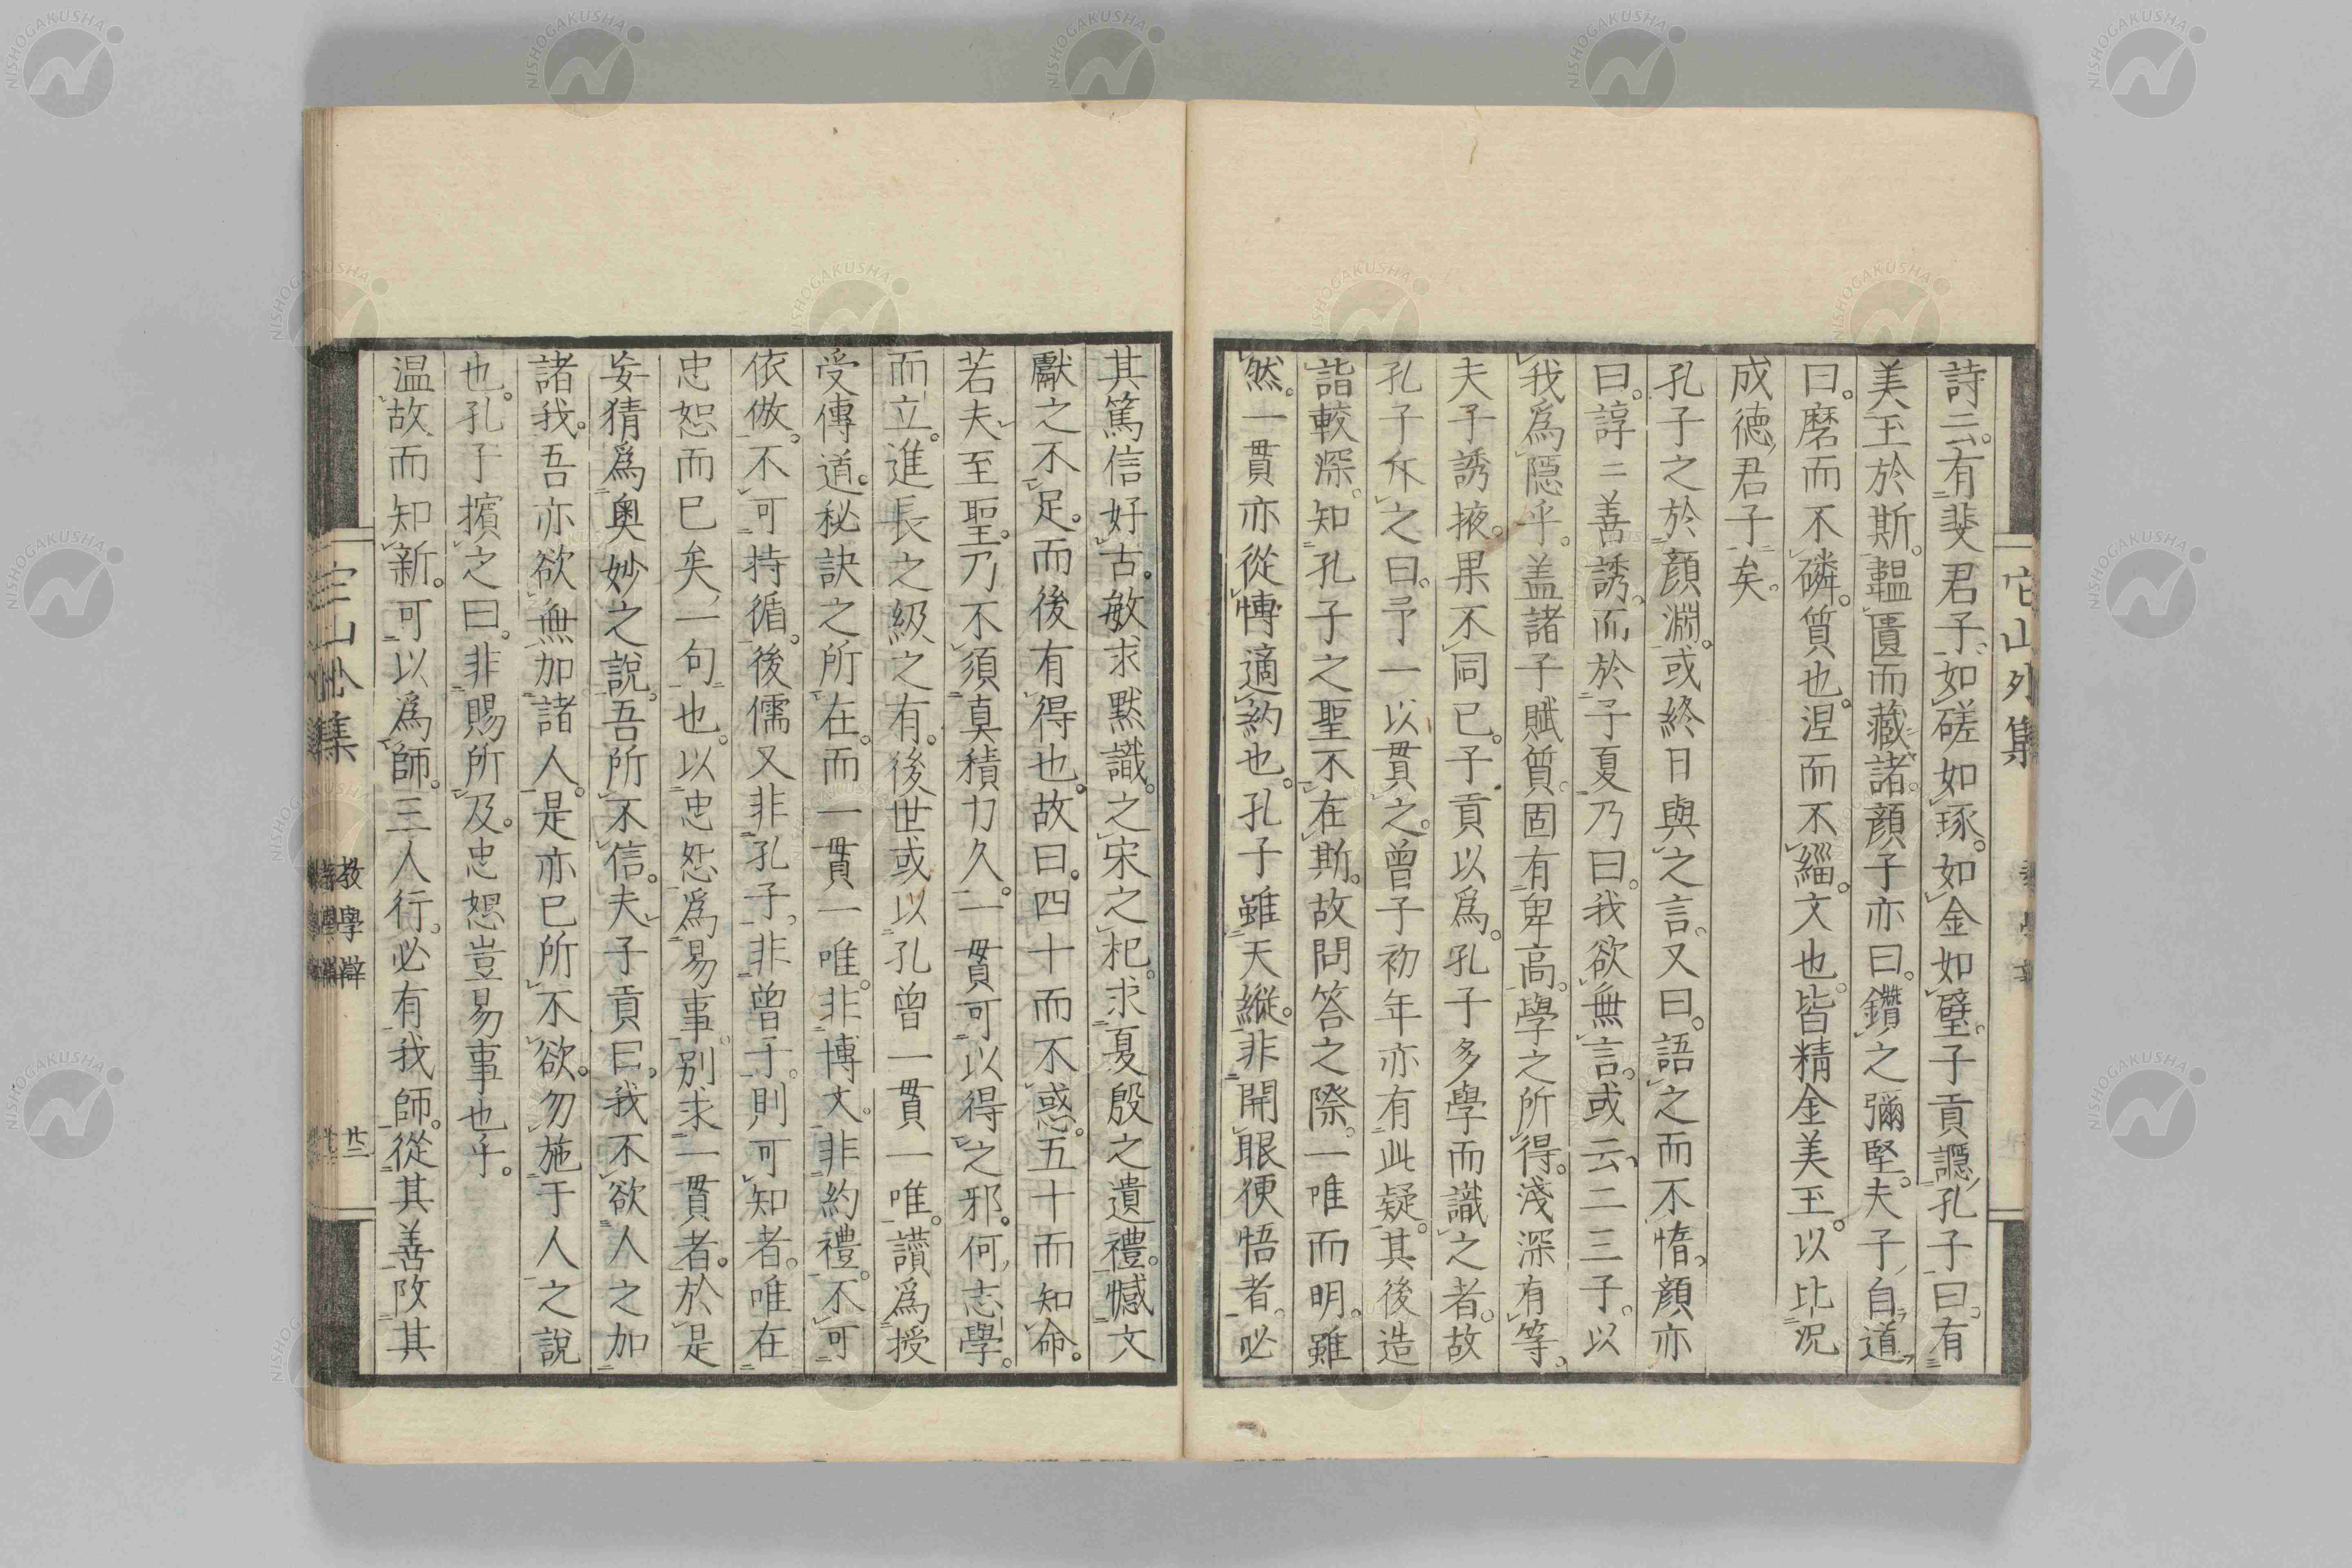 詩云。有斐君子。如磋如琢。如金如璧。子貢讔孔子曰。有
美玉於斯。韞匵而藏諸。顏子亦曰。鑽之彌堅。夫子自道
曰。磨而不磷。質也。涅而不緇。文也。皆精金美玉。以比況
成德君子矣。
孔子之於顏淵。或終日與之言。又曰。語之而不惰。顏亦
曰。諄〻善誘。而於子夏乃曰。我欲無言。或云二三子。以
我爲隱乎。盖諸子賦質。固有卑高。學之所得。淺深有等。
夫子誘掖。果不同已。子貢以爲。孔子多學而識之者。故
孔子斥之曰。予一以貫之。曾子初年亦有此疑。其後造
詣較深。知孔子之聖不在斯。故問答之際。一唯而明。雖
然。一貫亦從博適約也。孔子雖天縱。非開眼便悟者。必
其篤信好古。敏求默識。之宋之杞。求夏殷之遺禮。憾文
獻之不足。而後有得也。故曰。四十而不惑。五十而知命。
若夫至聖。乃不須真積力久。一貫可以得之邪。何志學。
而立。進長之級之有。後世或以孔曾一貫一唯。讀爲授
受傳道。秘訣之所在。而一貫一唯。非博文。非約禮。不可
依倣。不可持循。後儒又非孔子。非曾子。則可知者。唯在
忠恕而已矣一句也。以忠恕爲易事。別求一貫者。於是
妄猜爲奧妙之說。吾所不信。夫子貢曰。我不欲人之加
諸我。吾亦欲無加諸人。是亦已所不欲。勿施于人之說
也。孔子擯之曰。非賜所及。忠恕豈易事也乎。
温故而知新。可以爲師。三人行。必有我師。從其善改其
它山外集
教學辯
廿二
它山外集